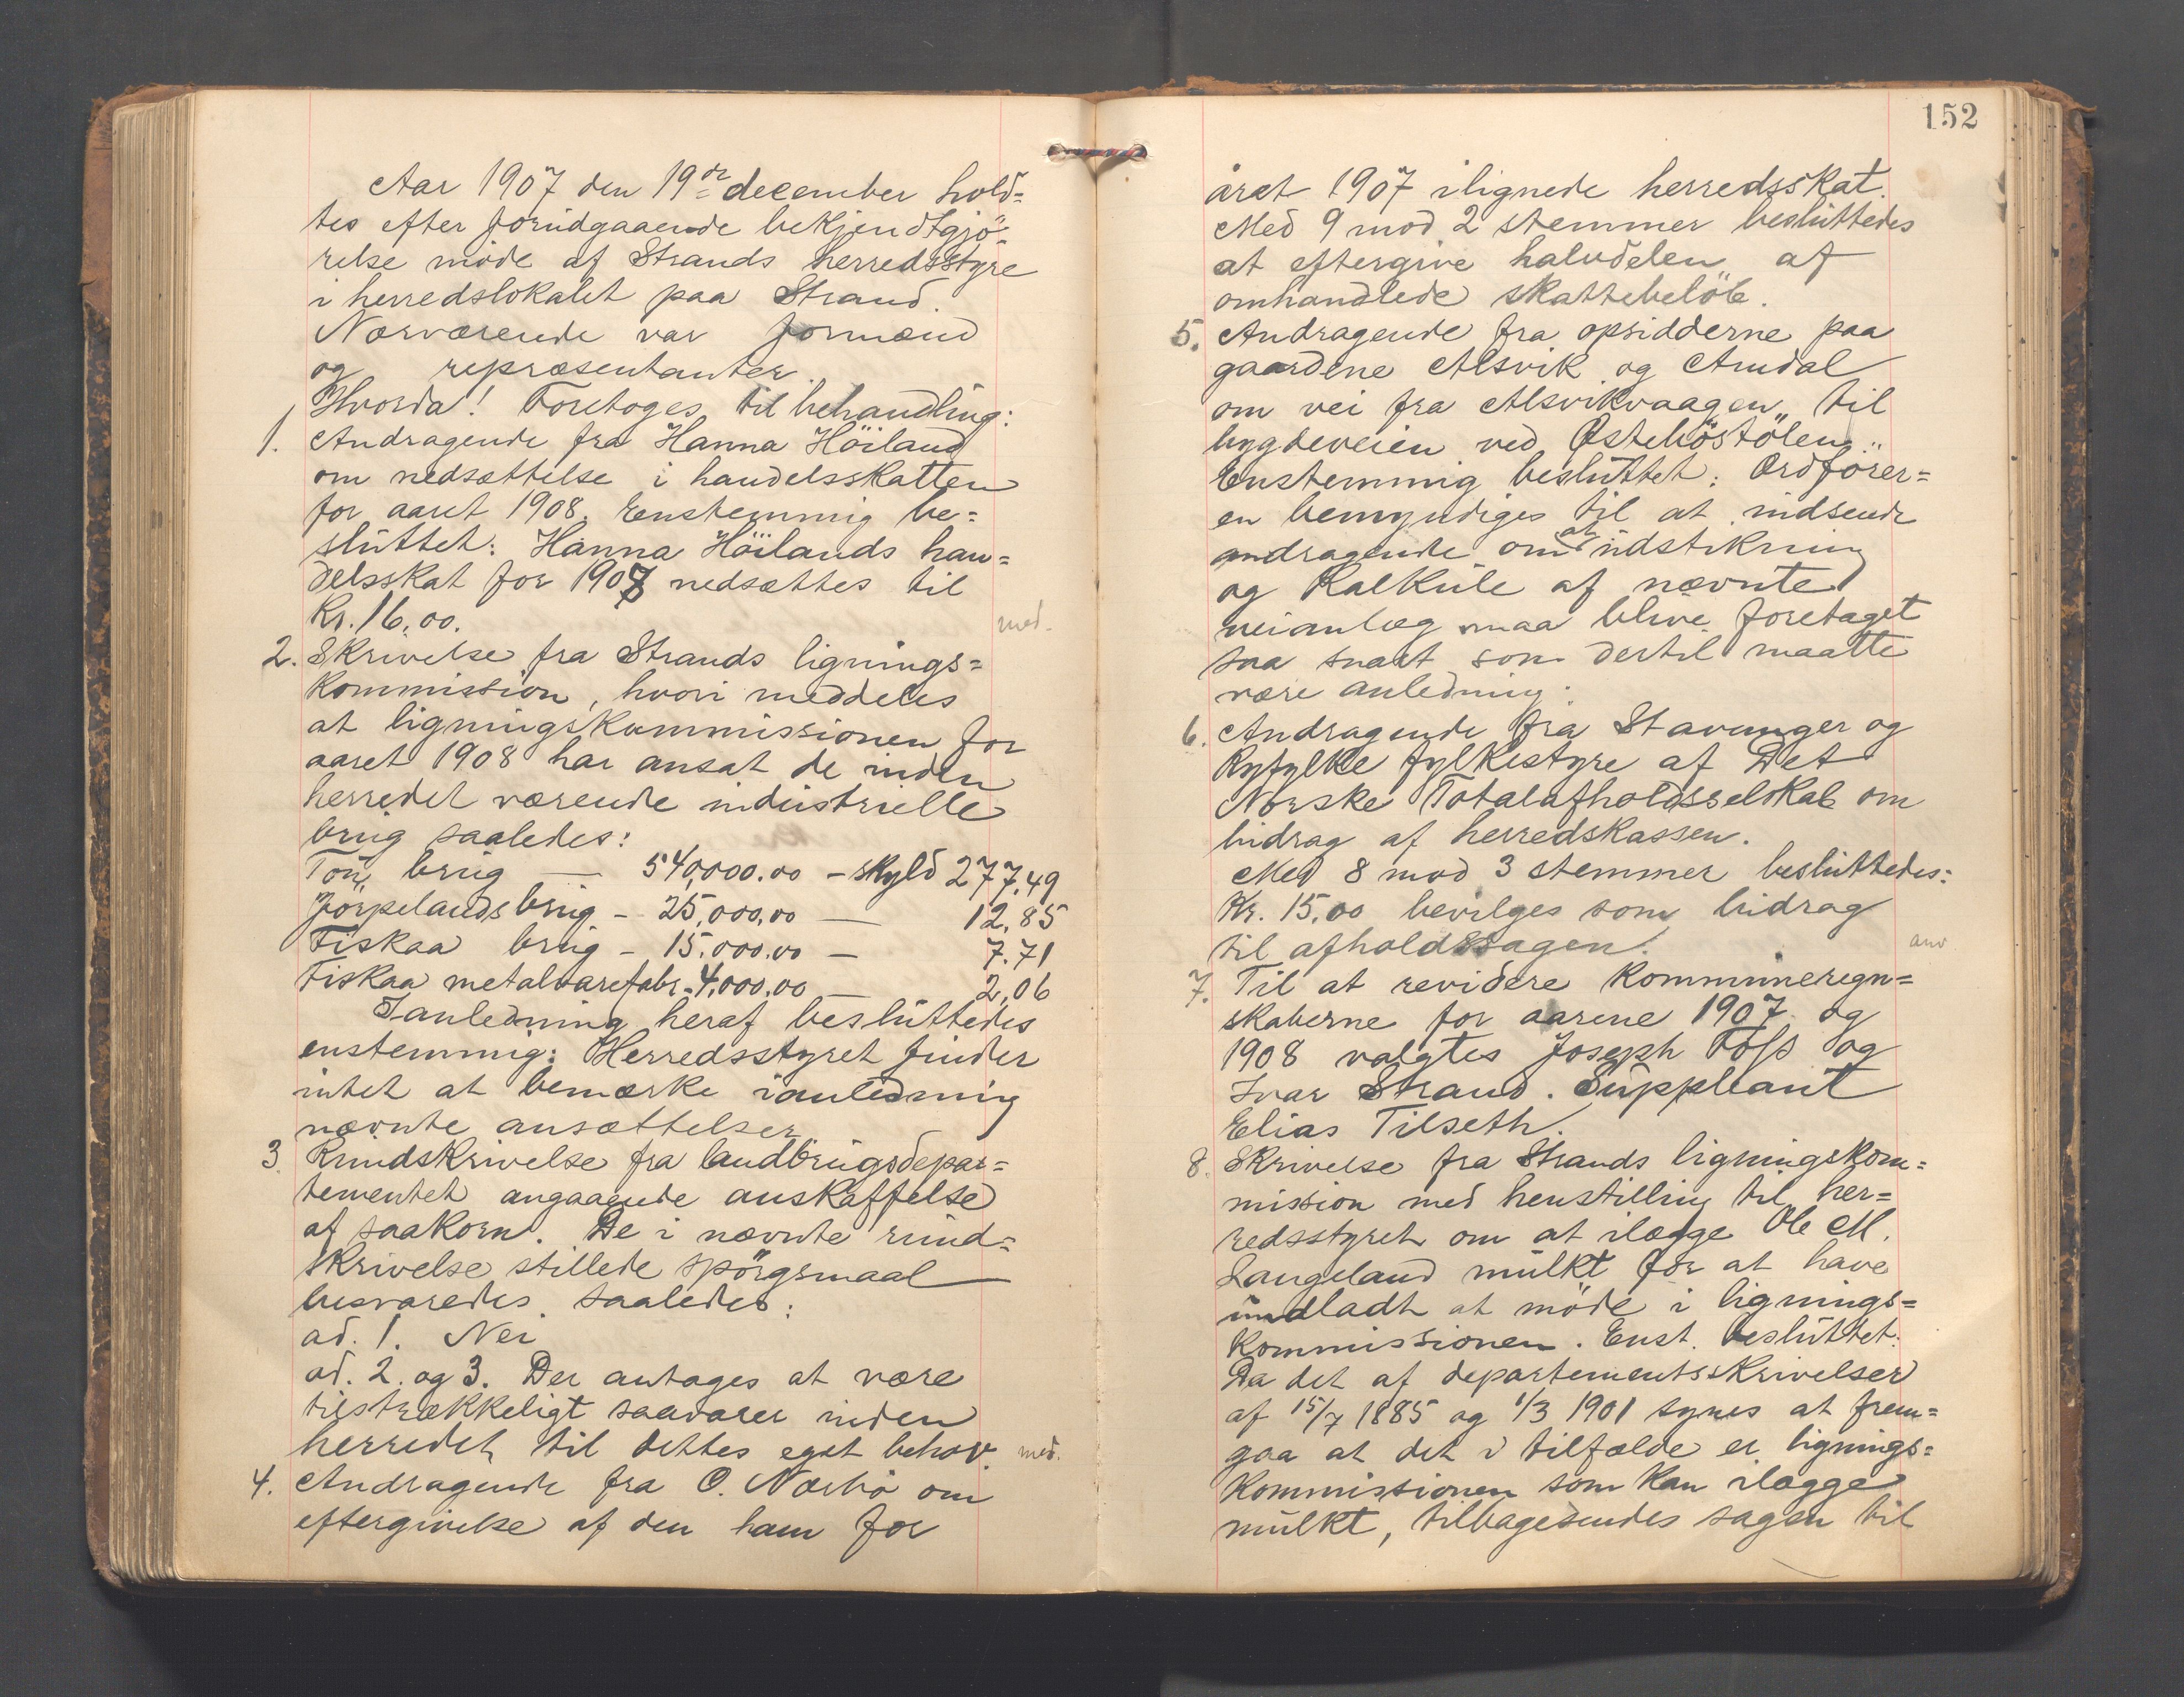 Aar 1907 den 19de december hold=
tes efter forudgaaende bekjendtgjö=
relse möde af Strands herredsstyre
i herredslokalet paa Strand.
Nærværende var formænd
og repræsentanter.
Hvorda! Foretoges til behandling:
1. Andragende fra Hanna Höiland
om nedsættelse i handelsskatten
for aaret 1908. Enstemmig be=
sluttet: Hanna Höilands han=
delsskat for 1908 nedsættes til
Kr. 16,00. med.
2. Skrivelse fra Strands lignings=
kommission, hvori meddeles
at ligningskommissionen for
aaret 1908 har ansat de inden
herredet værende industrielle
brug saaledes:
Tou brug — 540,000.00 - skyld 277,49
Jörpelands brug - 25,000,00 — 12,85
Fiskaa brug - 15.000.00 — 7.71
Fiskaa metalvarefabr. - 4,000,00 — 2,06
Ianledning heraf besluttedes
enstemmig: Herredsstyret finder
intet at bemærke ianledning
nævnte ansættelser.
3. Rundskrivelse fra landbrugsdepar=
tementet angaaende anskaffelse
af saakorn. De i nævnte rund=
skrivelse stillede spörgsmaal
besvaredes saaledes:
ad. 1. Nei
ad. 2. og 3. Der antages at være
tilstrækkeligt saavarer inden
herredet til dettes eget behov. med.
4. Andragende fra O. Nærbö om
eftergivelse af den ham for
152
året 1907 ilignede herredsskat.
Med 9 mod 2 stemmer besluttedes
at eftergive halvdelen af
omhandlede skattebelöb.
5. Andragende fra opsidderne paa
gaardene Alsvik og Amdal
om vei fra Alsvikvaagen til
bygdeveien ved
Enstemmig besluttet: Ordförer=
en bemyndiges til at indsende
andragende om at udstikning
og kalkule af nævnte
veianlæg maa blive foretaget
saa snart som dertil maatte
være anledning.
6. Andragende fra Stavanger og
Ryfylke fylkestyre af Det
Norske Totalafholdsselskab om
bidrag af herredskassen.
Med 8 mod 3 stemmer besluttedes:
Kr. 15,00 bevilges som bidrag
til afholdssagen. anv
7. Til at revidere kommuneregn=
skaberne for aarene 1907 og
1908 valgtes Joseph Foss og
Ivar Strand. Suppleant
Elias Tilseth.
8. Skrivelse fra Strands ligningskom=
mission med henstilling til her=
redsstyret om at ilægge Ole M.
Langeland mulkt for at have
undladt at möde i lignings=
kommissionen. Enst. besluttet.
Da det af departementsskrivelser
af 15/7 1885 og 1/3 1901 synes at frem=
gaa at det i tilfælde er lignings=
kommissionen som kan ilægge
mulkt, tilbagesendes sagen til